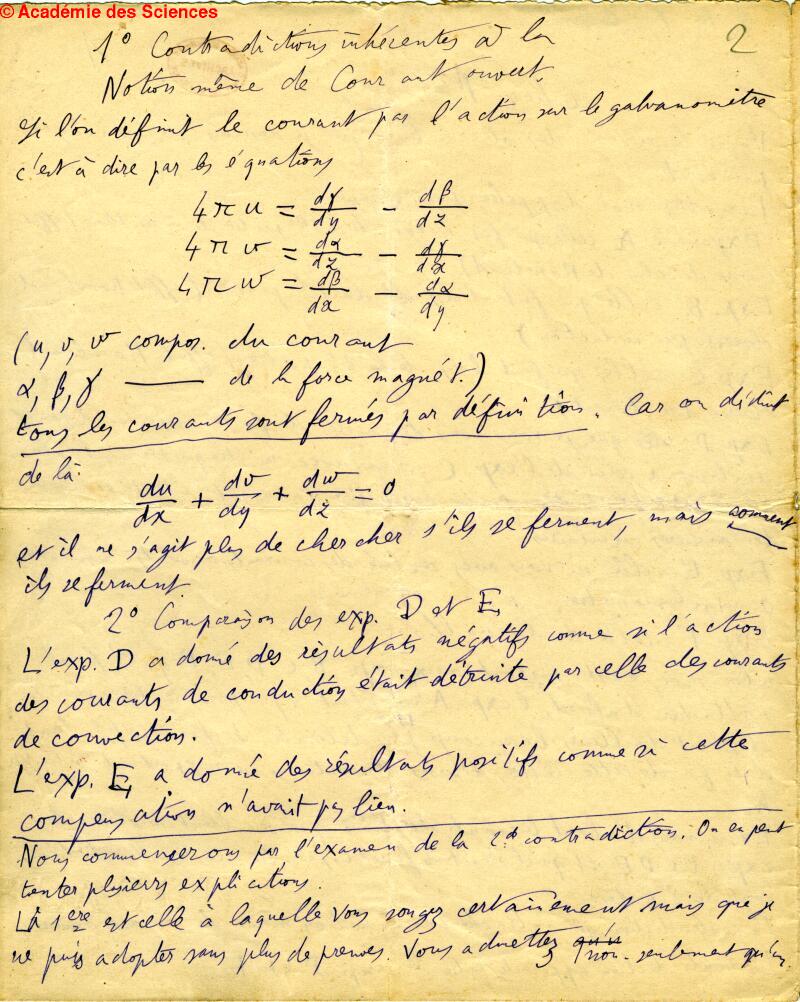 © Académie des Sciences
2
1° Contradictions inhérentes à la
Notion même de Courant ouvert.
Si l'on définit le courant par l'action sur le galvanomètre
c'est à dire par les équations
4πu = dγ/dy - dβ/dz
4πv = dα/dz - dγ/dx
4πw = dβ/dx - dα/dy
(u, v, w compos. du courant
α, β, γ —— de la force magnét.)
tous les courants sont fermés par définition. Car on déduit
de là:
du/dx + dv/dy + dw/dz = 0
et il ne s'agit plus de chercher s'ils se ferment, mais comment
ils se ferment
2° Comparaison des exp. D et E1
L'exp. D a donné des résultats négatifs comme si l'action
des courants de conduction était détruite par celle des courants
de convection.
L'exp. E1 a donné des résultats positifs comme si cette
compensation n'avait pas lieu.
Nous commencerons par l'examen de la 2de contradiction. On en peut
tenter plusieurs explications.
La 1ère est celle à laquelle vous songez certainement mais que je
ne puis adopter sans plus de preuves. Vous admettez non seulement qu'un